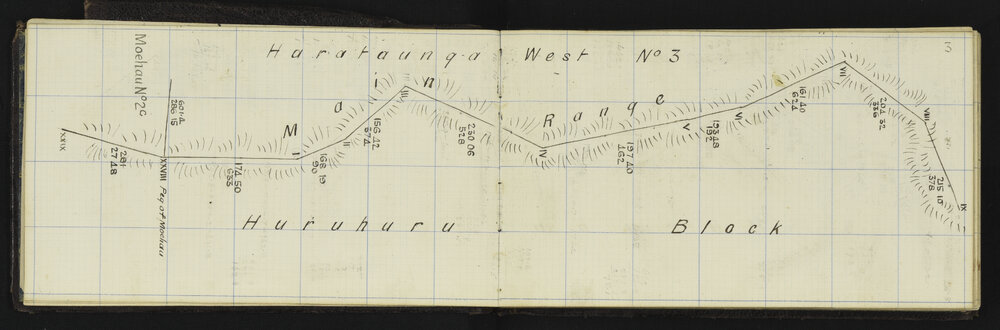 3
Harataunga West No 3
Moehau No 2c
Main Range
XXIX
281
27.48
XXVIII Peg of Moehau
601.4
286 15
174 50
633
I
168 19
90
II
156 42
374
III
230 06
528
IV
197 40
462
V
193 48
192
VI
161 40
624
VII
204 32
336
VIII
215 15
378
IX
Huruhuru Block